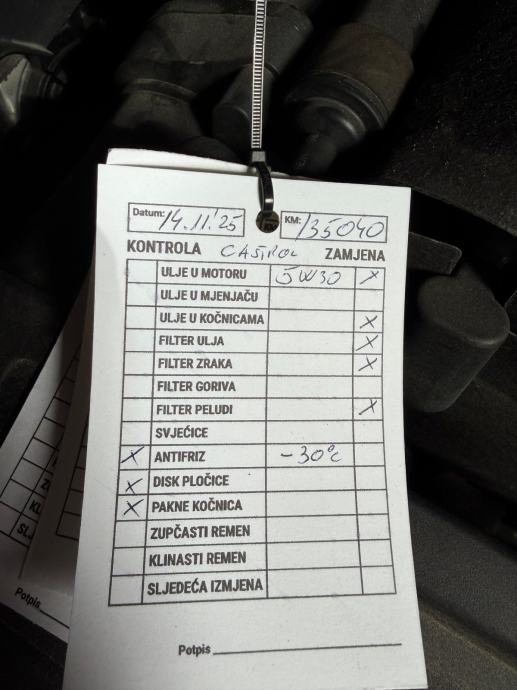 Datum: 14.11.'25 KM: 135040
KONTROLA CASTROL ZAMJENA
ULJE U MOTORU 5W30 X
ULJE U MJENJAČU
ULJE U KOČNICAMA X
FILTER ULJA X
FILTER ZRAKA X
FILTER GORIVA
FILTER PELUDI X
SVJEĆICE
X ANTIFRIZ -30°C
X DISK PLOČICE
X PAKNE KOČNICA
ZUPČASTI REMEN
KLINASTI REMEN
SLJEDEĆA IZMJENA
Potpis
Potpis